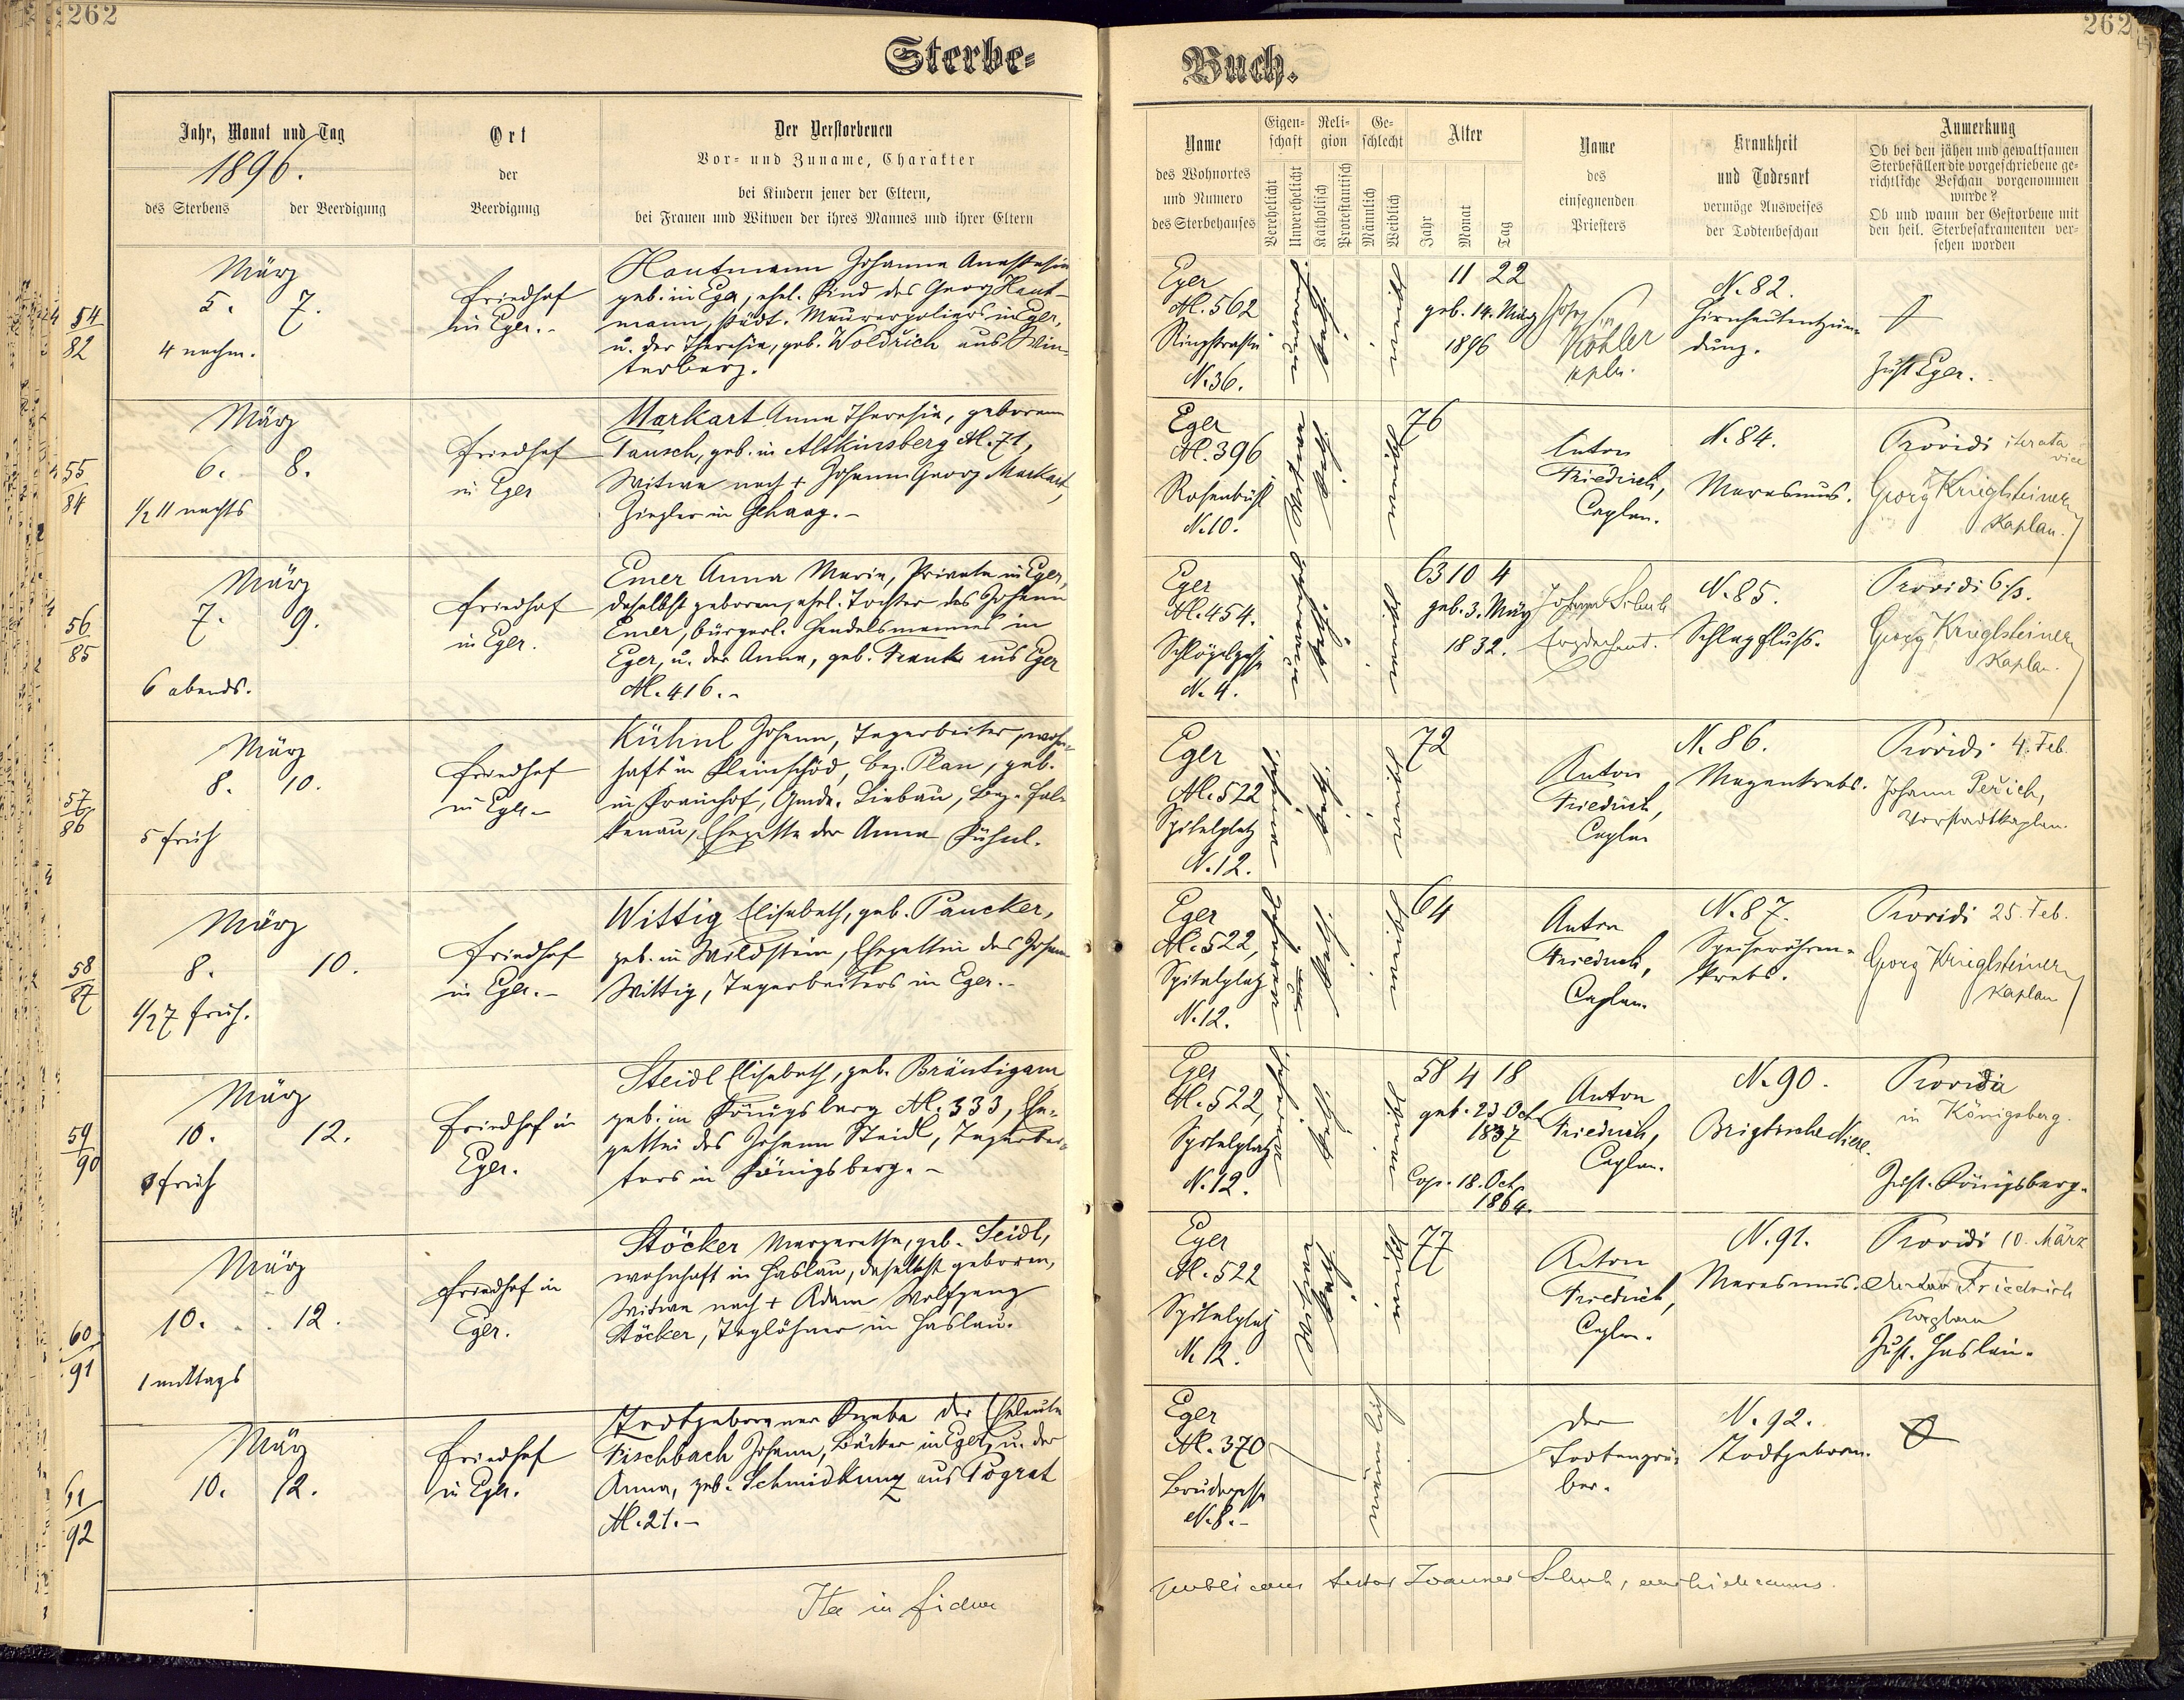 262
262
Sterbe=
Buch.
Jahr, Monat und Tag
1896.
des Sterbens
der Beerdigung
Ort
der
Beerdigung
Der Verstorbenen
Vor- und Zuname, Charakter
bei Kindern jener der Eltern,
bei Frauen und Witwen der ihres Mannes und ihrer Eltern
Name
des Wohnortes
und Numero
des Sterbehauses
Eigen-
schaft
Verehelicht
Unverehelicht
Reli-
gion
Katholisch
Protestantisch
Ge-
schlecht
Männlich
Weiblich
Alter
Jahr
Monat
Tag
Name
des
einsegnenden
Priesters
Krankheit
und Todesart
vermöge Ausweises
der Todtenbeschau
Anmerkung
Ob bei den jähen und gewaltsamen
Sterbefällen die vorgeschriebene ge-
richtliche Beschau vorgenommen
wurde?
Ob und wann der Gestorbene mit
den heil. Sterbesakramenten ver-
sehen worden
54
82
März
5. 7.
4 nachm.
Friedhof
in Eger.-
Hautmann Johanna Anastasia
geb. in Eger, ehel. Kind des Georg Haut-
mann, städt. Maurerpoliers in Eger,
u. der Theresia, geb. Woldrich aus Win-
terberg.
Eger
N. 562
Ringstrasse
N. 36.
11 22
geb. 14. März
1896
Köhler
N. 82.
Hirnhautentzün-
dung.
Zust. Eger.
55
84
März
6. 8.
1/2 11 nachts
Friedhof
in Eger
Markart Anna Theresia, geborene
Tausch, geb. in Altkinsberg N. 71,
Witwe nach + Johann Georg Markart,
Ziegler in Gehaag.-
Eger
N. 396
Rosenbühl
N. 10.
Witwe
76
Anton
Friedrich,
Caplan.
N. 84.
Marasmus.
Providi iterata
vice
Georg Krieglsteiner
Kaplan.
56
85
März
7. 9.
6 abends.
Friedhof
in Eger.
Emer Anna Maria, Private in Eger,
daselbst geboren, ehel. Tochter des Johann
Emer, bürgerl. Handelsmannes in
Eger, u. der Anna, geb. Frank aus Eger
N. 416.-
Eger
N. 454.
Schlögelgasse
N. 4.
63 10 4
geb. 3. März
1832.
Johann Schuh
Erzdechant.
N. 85.
Schlagfluss.
Providi 6/3.
Georg Krieglsteiner
Kaplan.
57
86
März
8. 10.
5 früh
Friedhof
in Eger-
Kühnl Johann, Tagarbeiter, wohn-
haft in Kleinschöd, bez. Plan, geb.
in Krainhof, Gmde. Liebau, bez. Fal-
kenau, Ehegatte der Anna Kühnl.
Eger
N. 522
Spitalplatz
N. 12.
72
Anton
Friedrich,
Caplan
N. 86.
Magenkrebs.
Providi 4. Feb.
Johann Peřich,
Vorstadtkaplan.
58
87
März
8. 10.
1/2 7 früh.
Friedhof
in Eger.-
Wittig Elisabeth, geb. Paucker,
geb. in Wildstein, Ehegattin des Johann
Wittig, Tagarbeiters in Eger.-
Eger
N. 522,
Spitalplatz
N. 12.
64
Anton
Friedrich,
Caplan.
N. 87.
Speiseröhren-
krebs.
Providi 25. Feb.
Georg Krieglsteiner
Kaplan
59
90
März
10. 12.
früh
Friedhof in
Eger.
Steidl Elisabeth, geb. Bräutigam
geb. in Königsberg N. 333, Ehe-
gattin des Johann Steidl, Tagarbei-
ters in Königsberg.-
Eger
N. 522,
Spitalplatz
N. 12.
58 4 18
geb. 23. Oct.
1837
Cop. 18. Oct.
1864.
Anton
Friedrich,
Caplan.
N. 90.
Brightsche Niere.
Providi
in Königsberg.
Zust. Königsberg.
60
91
März
10. 12.
1 mittags
Friedhof in
Eger.
Stöcker Margaretha, geb. Seidl,
wohnhaft in Haslau, daselbst geboren,
Witwe nach + Adam Wolfgang
Stöcker, Taglöhner in Haslau.
Eger
N. 522
Spitalplatz
N. 12.
Witwe
77
Anton
Friedrich,
Caplan.
N. 91.
Marasmus.
Providi 10. März
Anton Friedrich
Caplan
Zust. Haslau.
61
92
März
10. 12.
Friedhof
in Eger.
Todtgeborener Knabe der Eheleute
Fischbach Johann, Bäcker in Eger, u. der
Anna, geb. Schmidkunz aus Pograt
N. 21.-
Eger
N. 370
Brudergasse
N. 8.-
männlich
Der
Todtengrä-
ber.
N. 92.
Todtgeboren.
Ita in fidem
publicam testor Joannes Schuh, archidecanus.